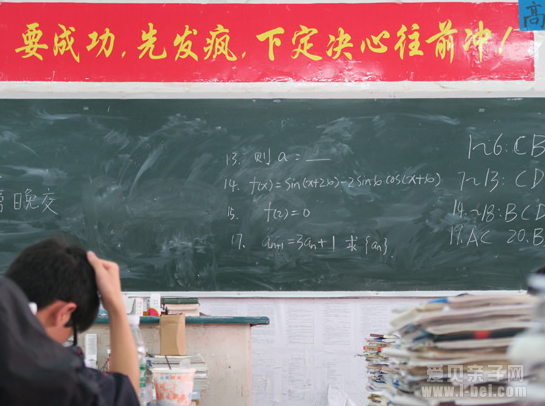 高
要成功,先发疯,下定决心往前冲!
13. 则 a = __
14. f(x)=sin(x+2φ)-2sinφcos(x+φ)
15. f(2)=0
17. aₙ₊₁=3aₙ+1 求{aₙ}
日晚交
1~6: CB
7~13: CD
14~18: BCD
19. AC 20. B
爱贝亲子网
www.i-bei.com